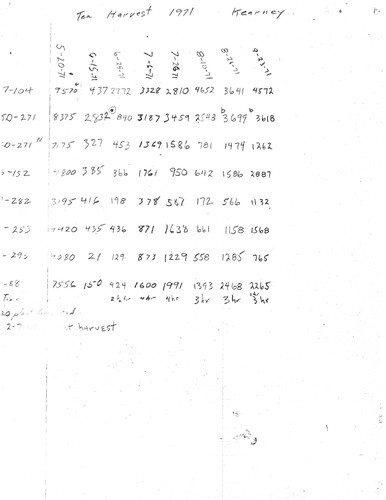 Tea Harvest 1971 Kearney
5-20-71 6-15-71 6-24-71 7-6-71 7-20-71 8-10-71 8-25-71 9-23-71
7-104 9570 a 437 2772 3328 2810 4652 3641 4572
50-271 8375 2832 a 840 3187 3459 2543 b 3699 b 3618
0-271 N 7175 327 453 1369 1586 781 1474 1262
-152 4300 385 366 1761 950 642 1586 2887
-282 3195 416 198 378 587 172 566 1132
-253 4420 435 436 871 1638 661 1158 1568
-295 4080 21 129 873 1229 558 1285 765
-88 7556 150 424 1600 1991 1393 2468 2265
Time 2½ hr 4 hr 4 hr 3 hr 3 hr 3 hr
harvest